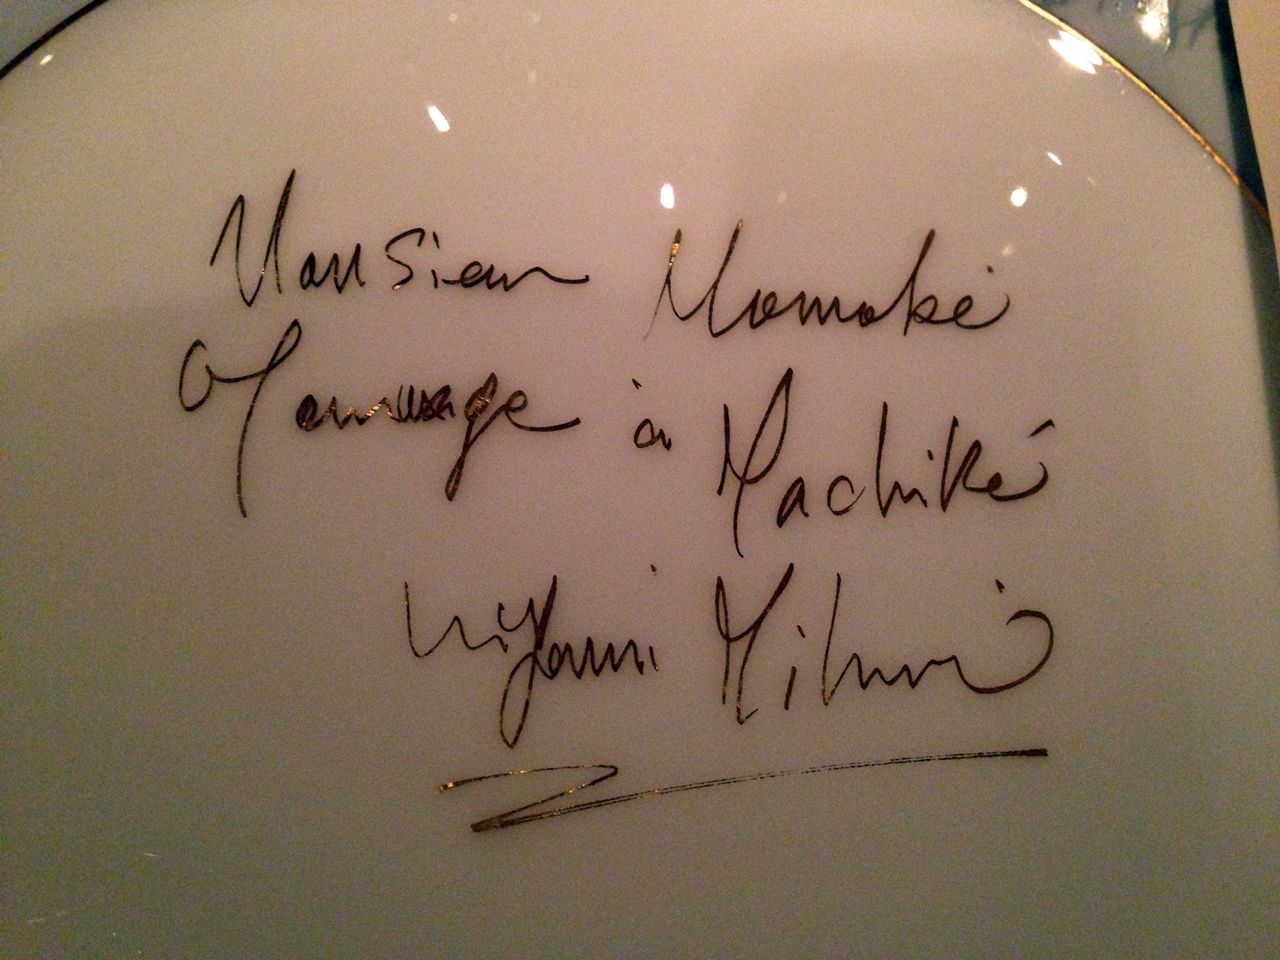 Monsieur Momoké
Hommage à Machiké
Kiyomi Mikuni